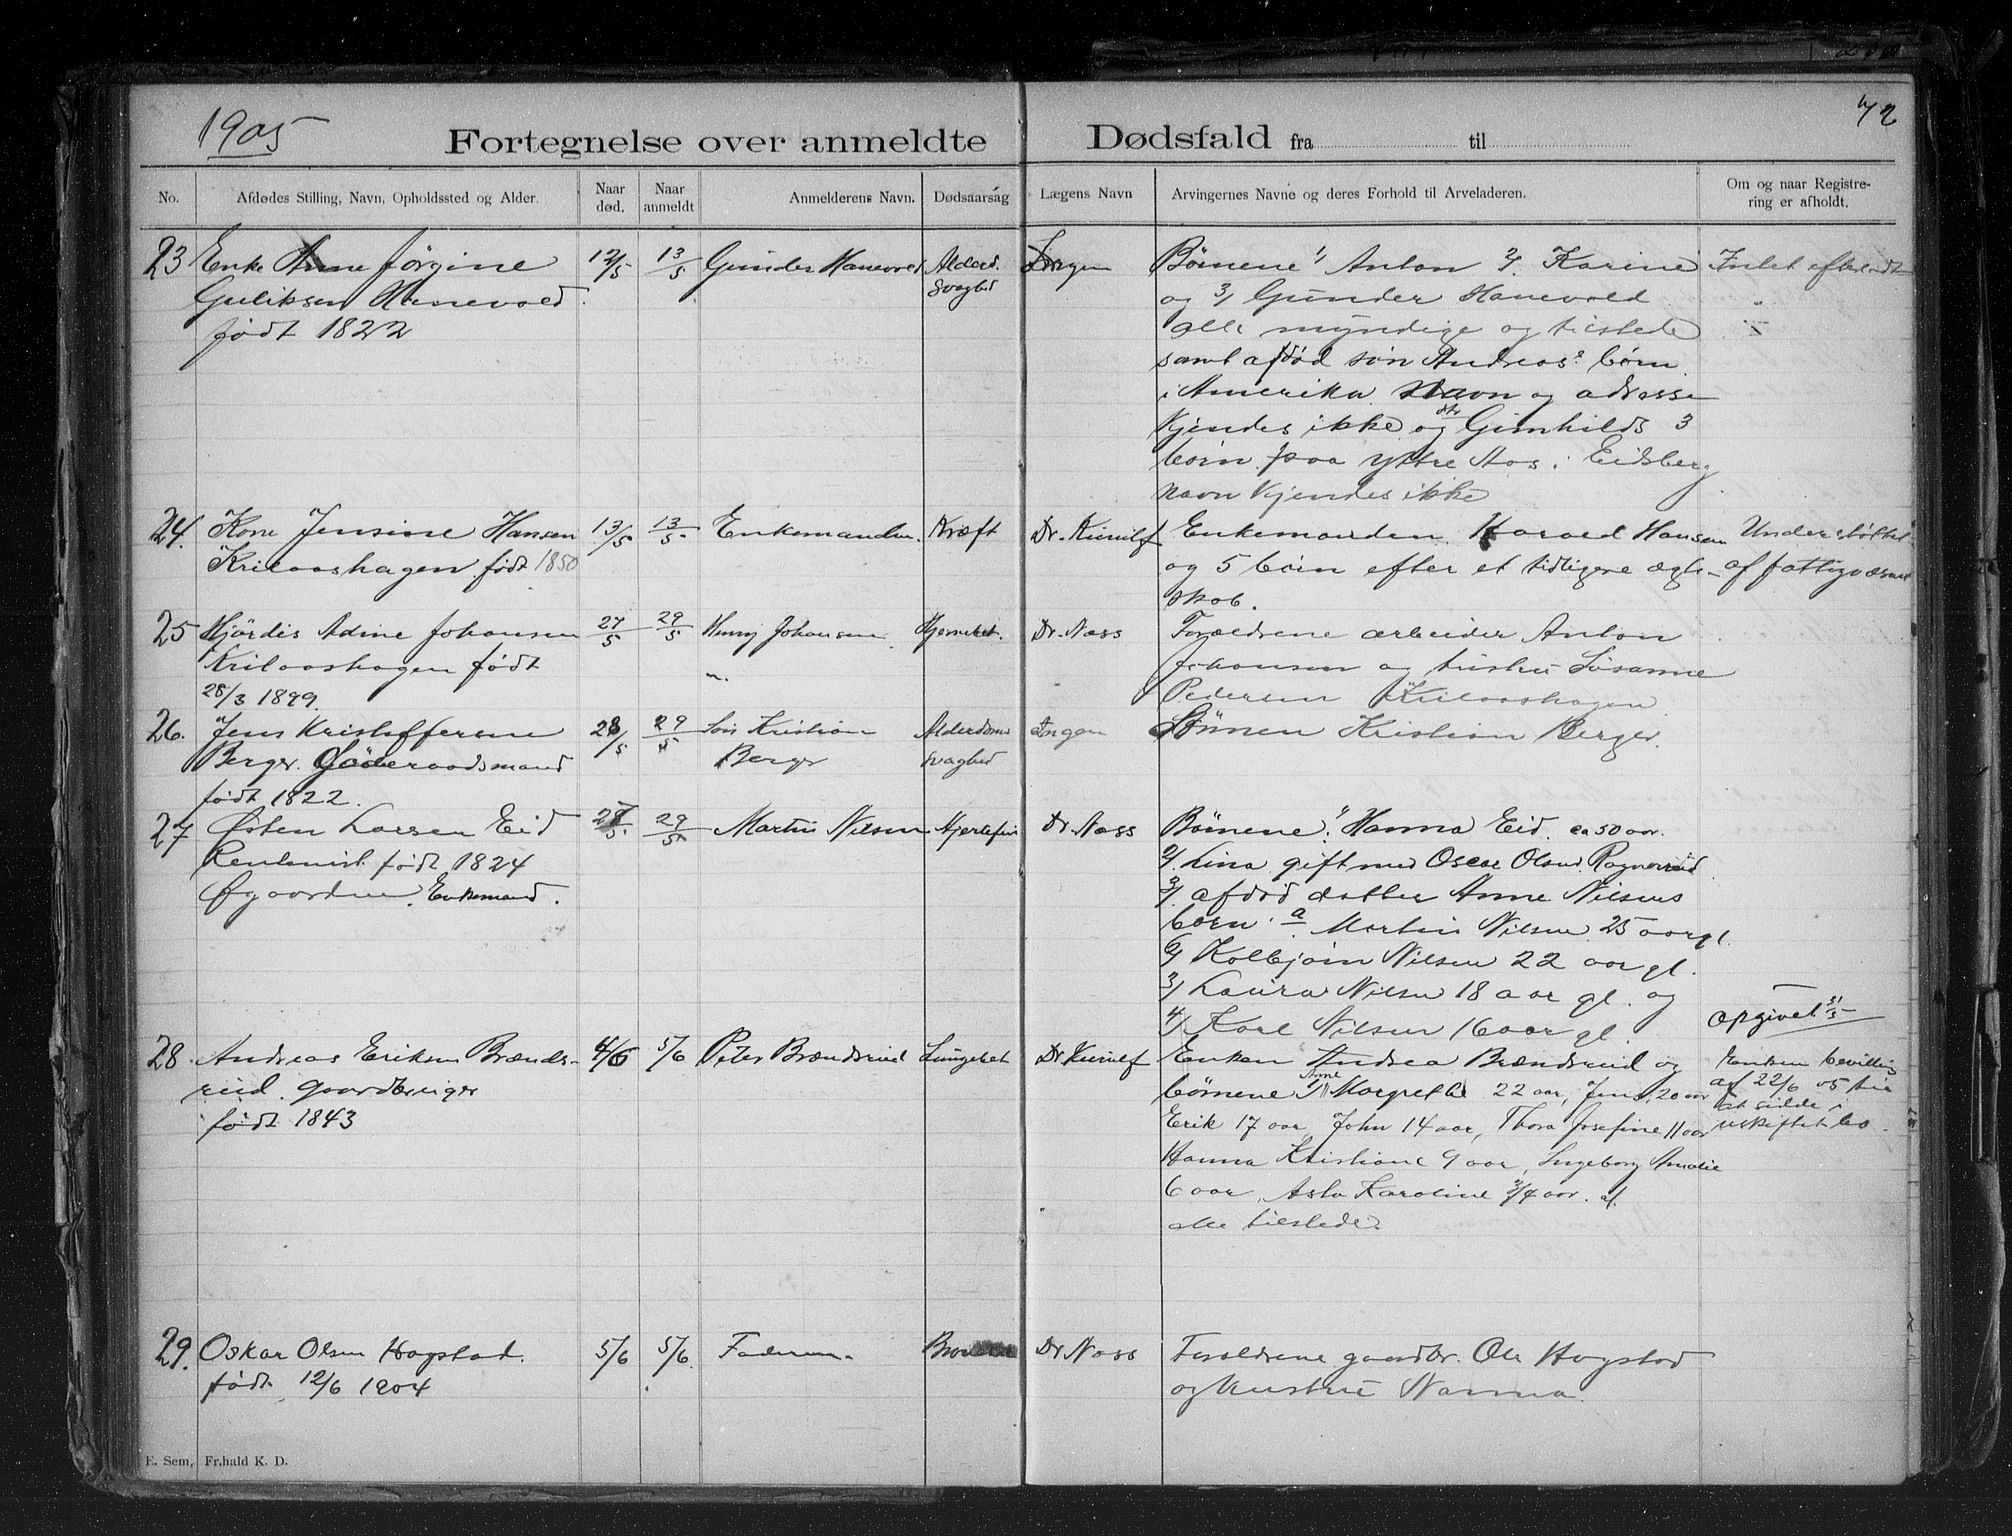 1905
72
Fortegnelse over anmeldte Dødsfald fra til
No. Afdødes Stilling, Navn, Opholdssted og Alder. Naar død. Naar anmeldt Anmelderens Navn. Dødsaarsag Lægens Navn Arvingernes Navne og deres Forhold til Arveladeren. Om og naar Registrering er afholdt.
23 Enke Anne Jørgine 12/5 13/5 Gunder Hanevold Alderd. Ingen Børnene 1/ Anton 2/ Karine Intet efterladt
Guliksen Hanevold svaghed og 3/ Gunder Hanevold
født 1822 alle myndige og tilstede
samt afdød søn Andreas's børn
i Amerika Navn og adresse
kjendes ikke og dtr Gunhilds 3
børn paa Ytre Aas i Eidsberg
navn kjendes ikke
24. Kone Jensine Hansen 13/5 13/5 Enkemanden Kræft Dr. Kunilf Enkemanden Harald Hansen Understøttet
Krilaashagen født 1850 og 5 børn efter et tidligere ægte- af fattigvæsenet
skab.
25 Hjördis Adine Johansen 27/5 29/5 Henry Johansen Hjernebet. Dr. Næss Forældrene arbeider Anton
Krilaashagen født " Johansen og hustru Susanne
28/3 1899. Pedersen Krilaashagen
26. Jens Kristoffersen 28/5 29/5 Søn Kristian Alderdoms Ingen Sønnen Kristian Berger.
Berger. Föderaadsmand Berger svaghed
født 1822.
27 Østen Larsen Eid 28/5. 29/5 Martin Nilsen Hjertefeil Dr. Næss Børnene 1/ Hanna Eid. ca 50 aar.
Rentenist født 1824 2/. Lina gift med Oscar Olsen Ragnarud
Øgaarden. Enkemand. 3/. afdød datter Anne Nilsens
børn. a Martin Nilsen 25 aar gl.
6/ Kolbjørn Nilsen 22 aar gl.
3/ Laura Nilsen 18 aar gl. og
4/ Karl Nilsen 16 aar gl. opgivet 31/5
28. Andreas Eriksen Brænds- 4/6 5/6 Peter Brændsrud Lungebet Dr. Kunilf Enken Andrea Brændsrud og Enken bevilling
rud. gaardbruger børnene 1/ Anne Margrethe 22 aar, Jens, 20 aar af 22/6 05 til
født 1843 Erik 17 aar, John 14 aar, Thora Josefine 11 aar at sidde i
Hanna Kristiane 9 aar, Ingeborg Amalie uskiftet bo.
6 aar, Asta Karoline 3/4 aar. gl.
alle tilstede.
29. Oskar Olsen Hagstad. 5/6 5/6. Faderen. Dr Næss Forældrene gaardbr. Ole Hagstad
født 12/6 1904 og hustru Nanna.
E. Sem, Fr.hald K. D.